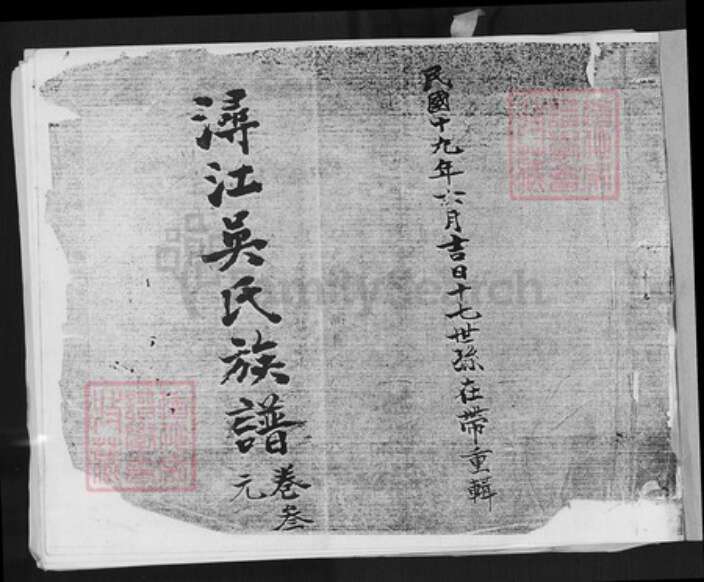 民國十九年六月吉日十七世孫在帶重輯
潯江吳氏族譜
卷叁
元
FamilySearch